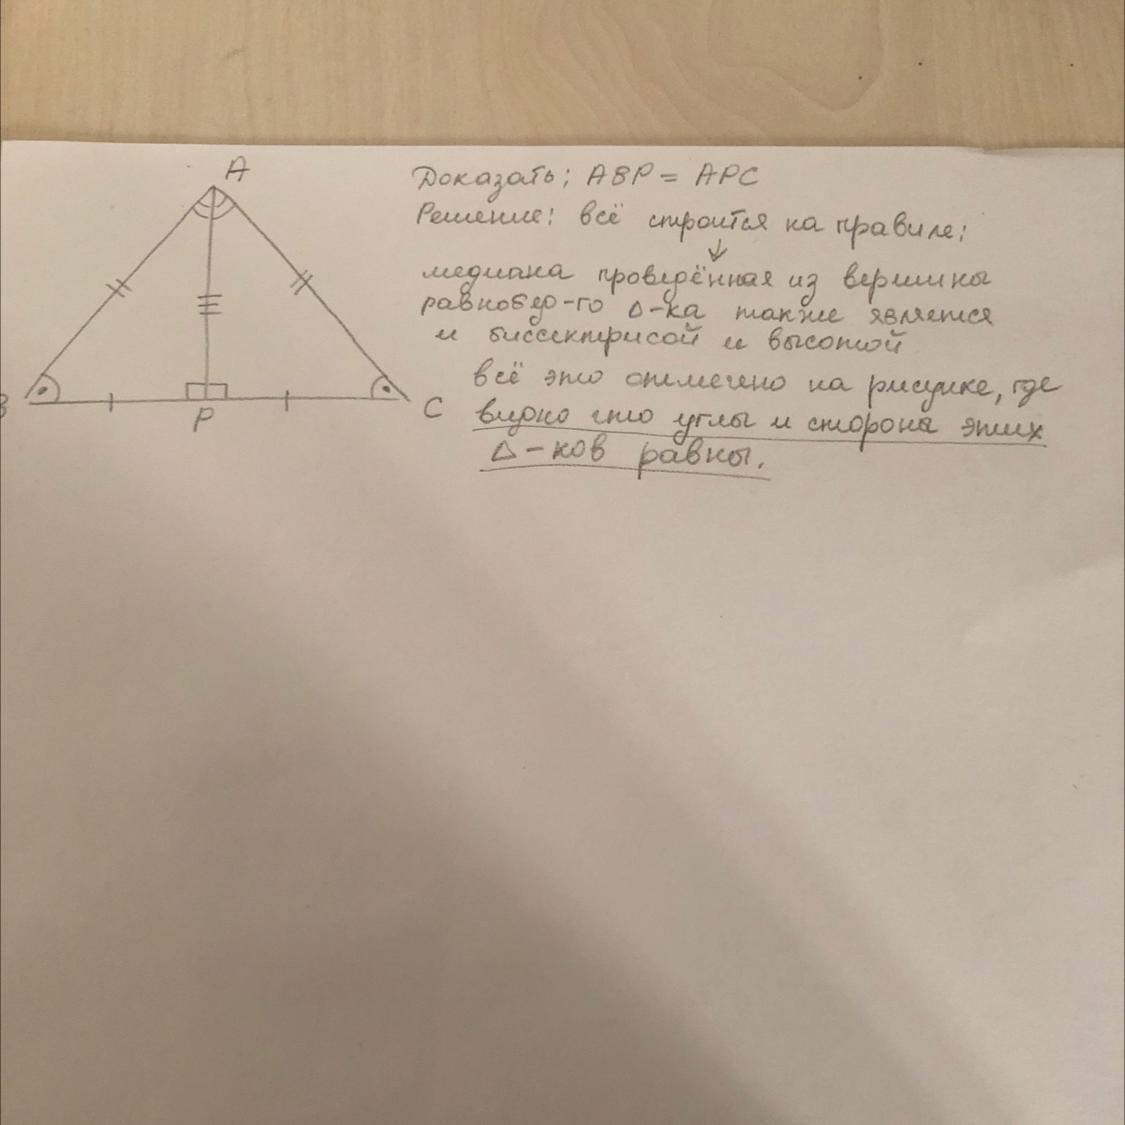 A
Доказать; ABP = APC
Решение: всё строится на правиле:
медиана проведённая из вершины
равнобед-го Δ-ка также является
и биссектрисой и высотой
всё это отмечено на рисунке, где
B P C видно что углы и стороны этих
Δ-ков равны.